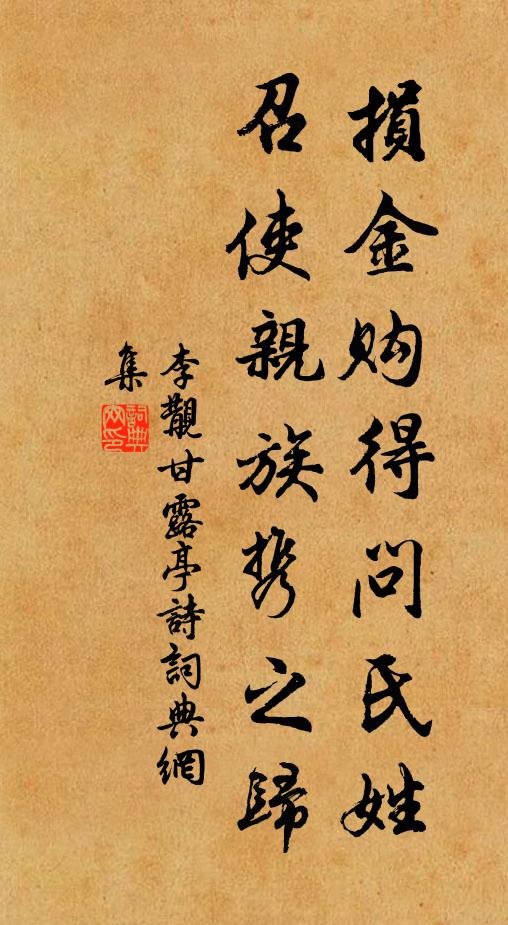 損金购得问氏姓
召使親族携之歸
李觀甘露亭詩詞典網
集
詞典